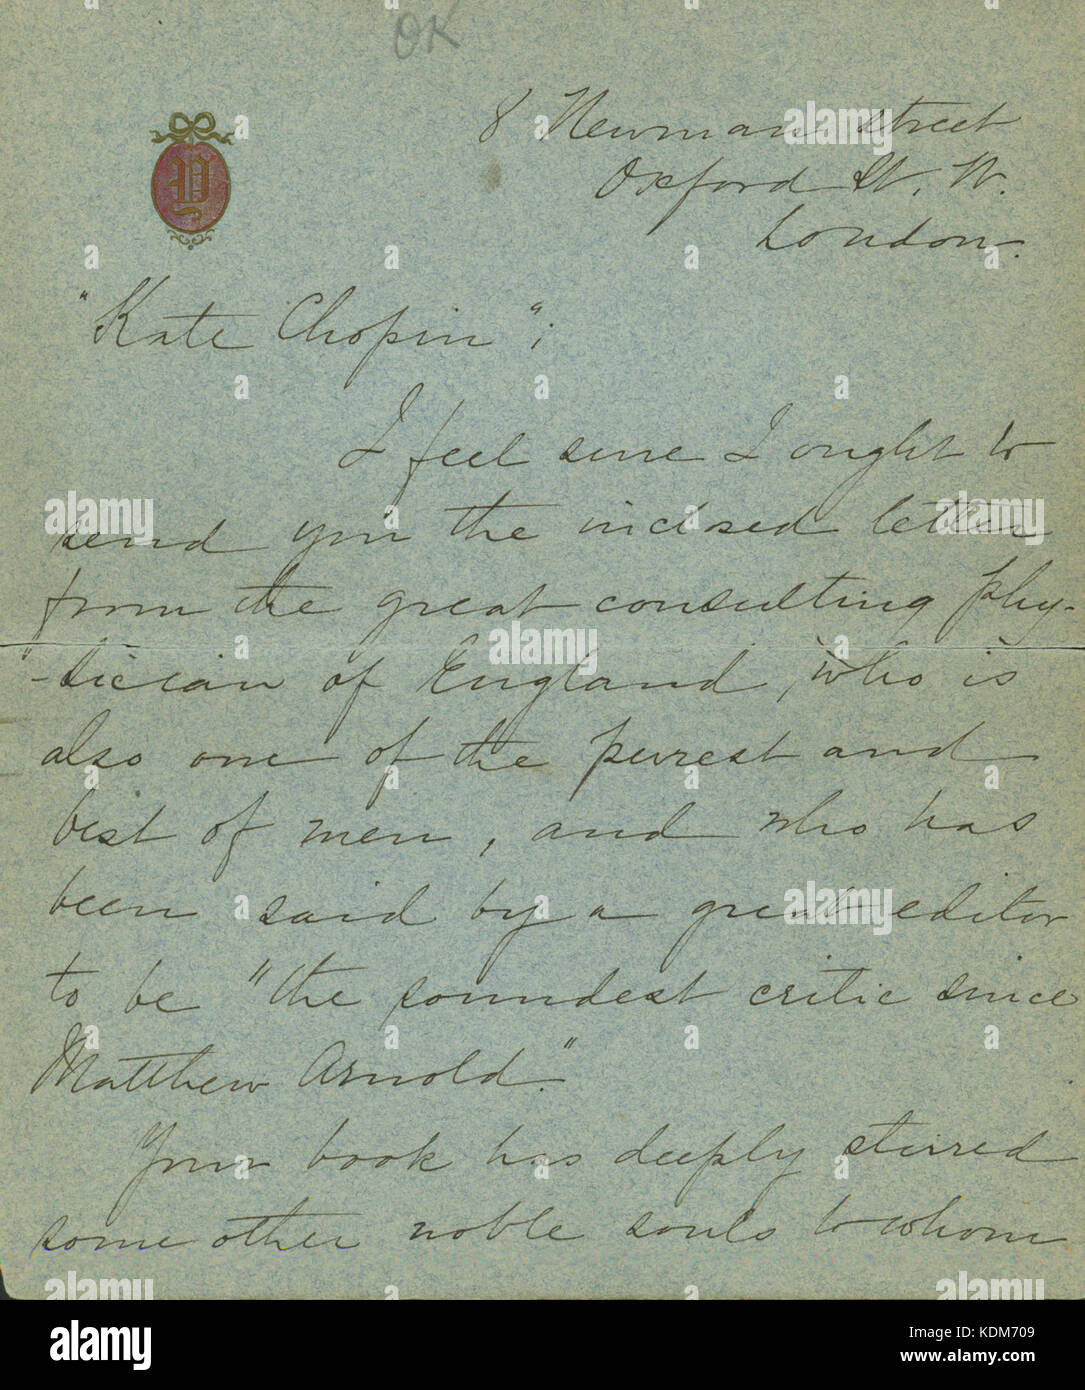 OK
8 Newman street
Oxford St. W.
London.
Y
"Kate Chopin";
I feel sure I ought to
send you the inclosed letter
from the great consulting phy-
-sician of England, who is
also one of the purest and
best of men, and who has
been said by a great editor
to be "the soundest critic since
Matthew Arnold."
Your book has deeply stirred
some other noble souls to whom
alamy
Image ID: KDM709
www.alamy.com